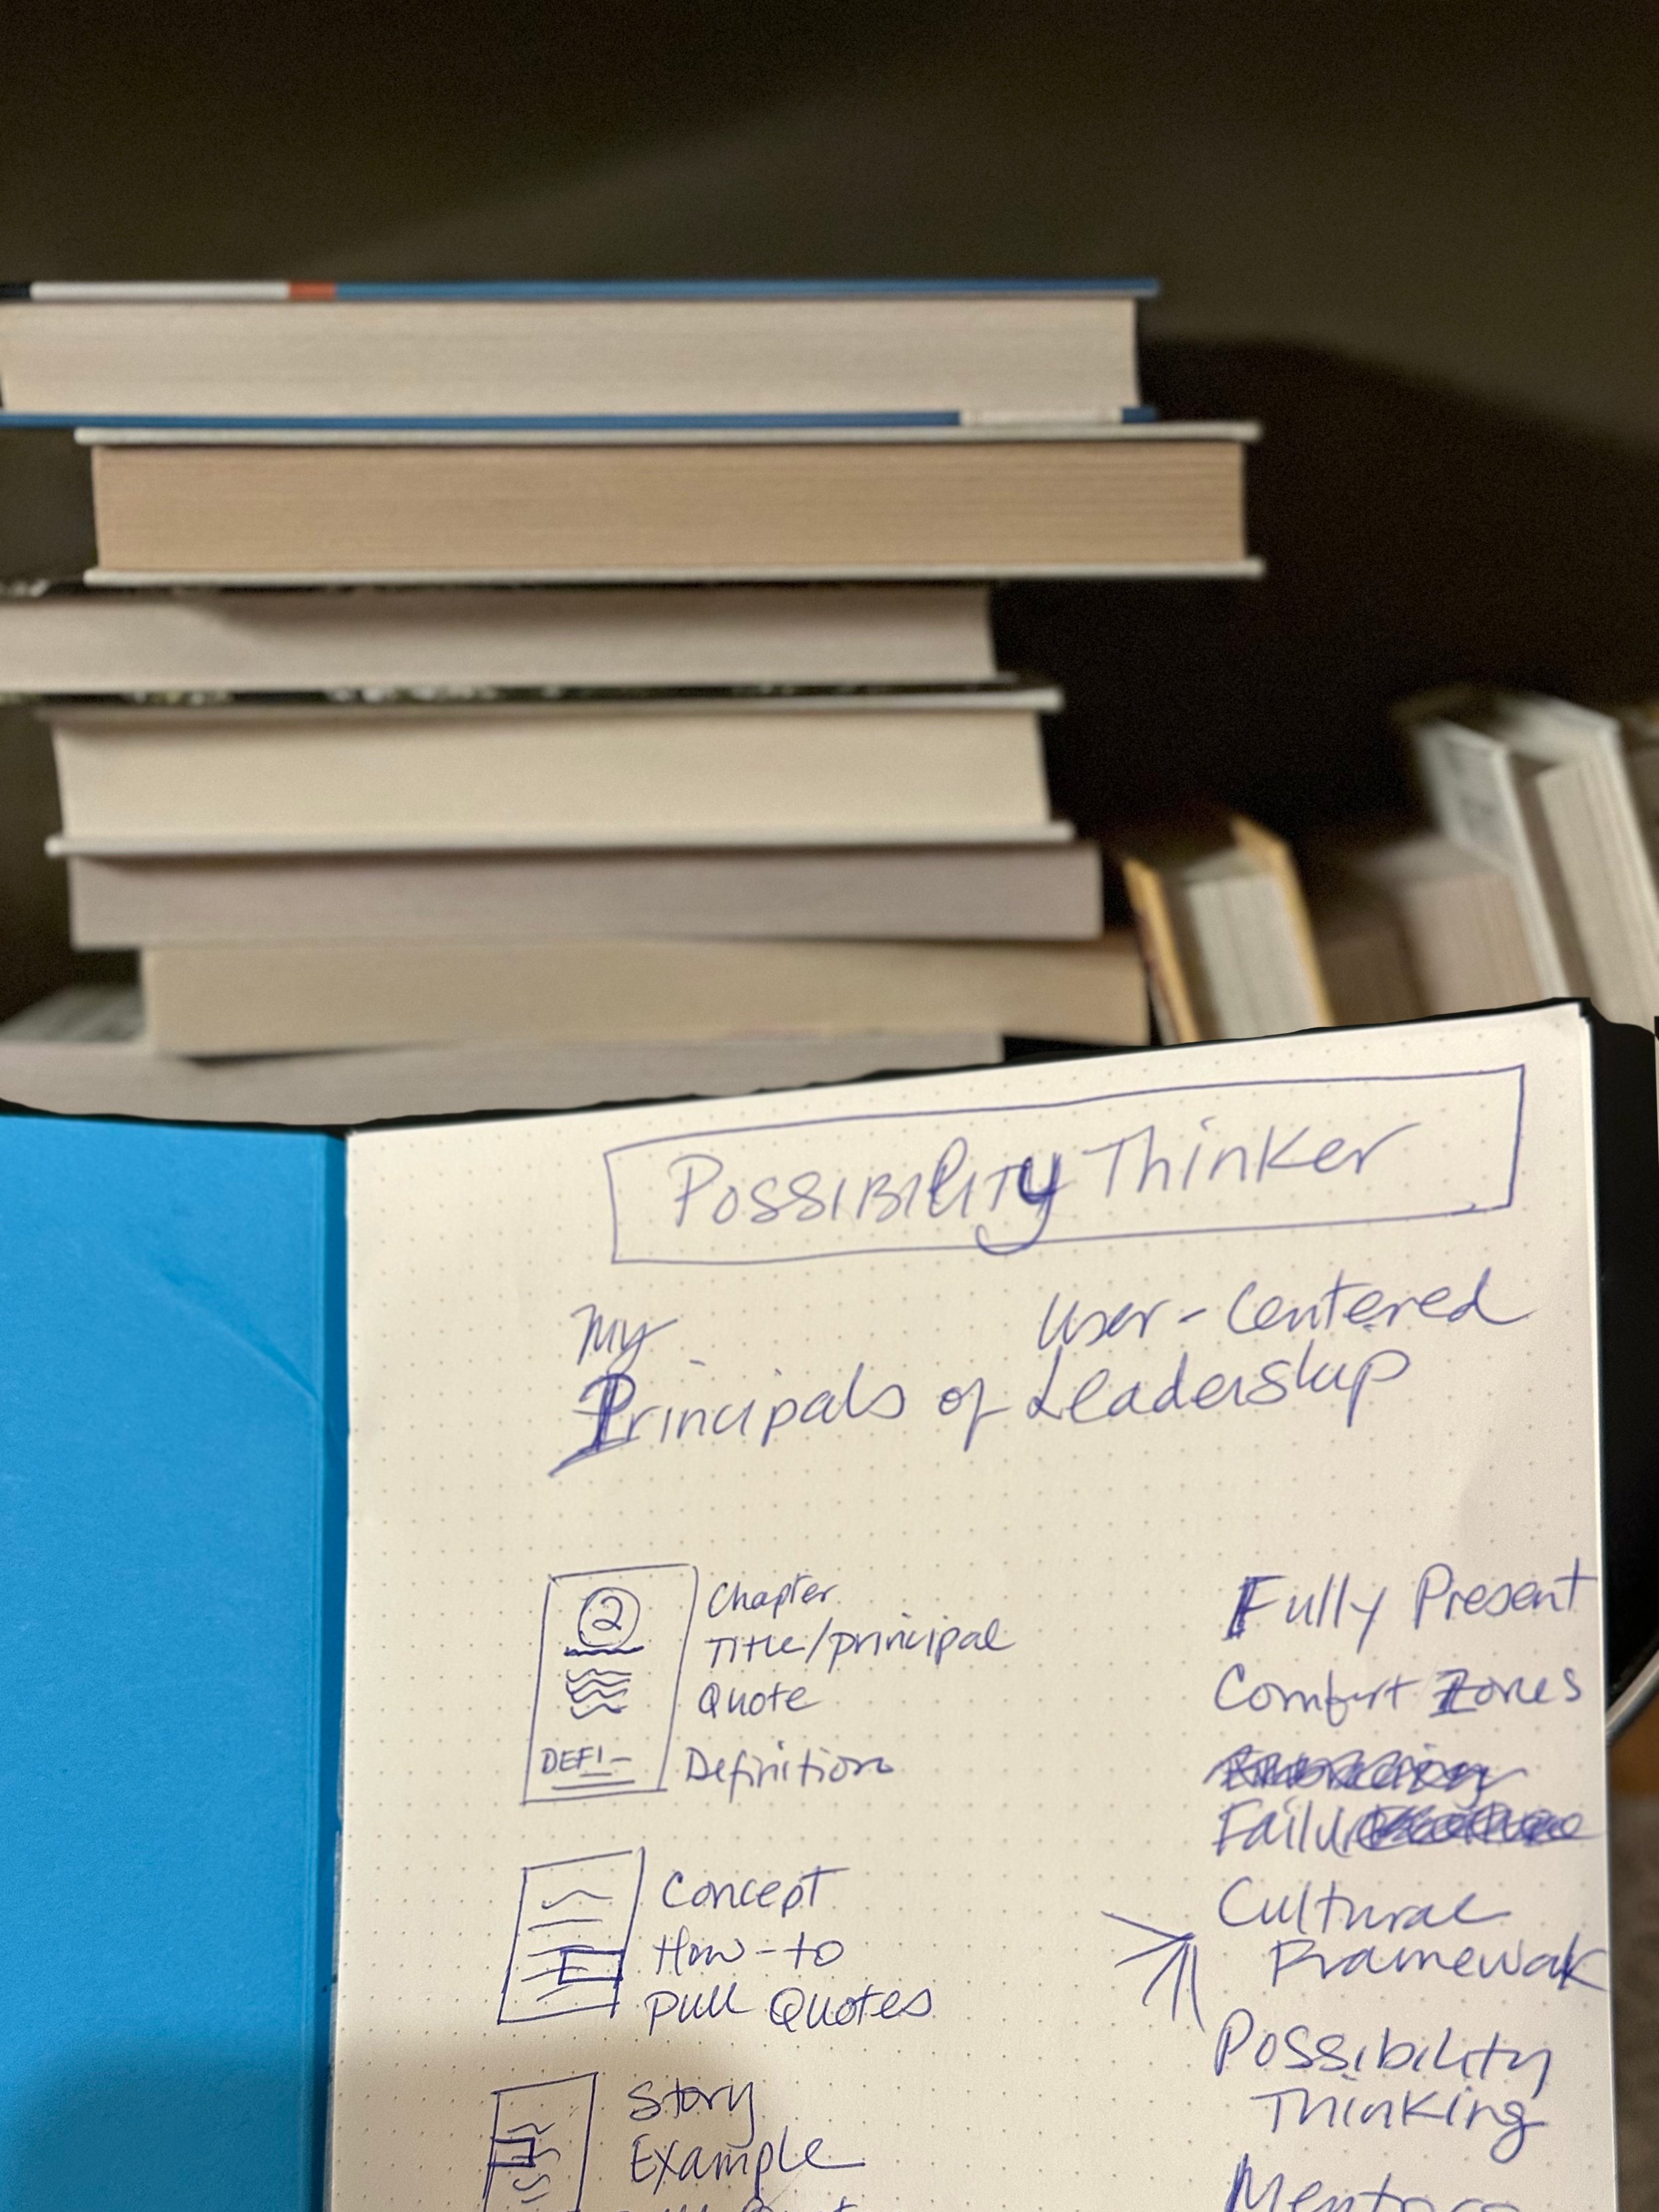 Possibility Thinker
My User-Centered
Principals of Leadership
2 Chapter
Title/principal
Quote
DEFI- Definition
Concept
How-to
Pull Quotes
Story
Example
Fully Present
Comfort Zones
Failure
Cultural
Framework
Possibility
Thinking